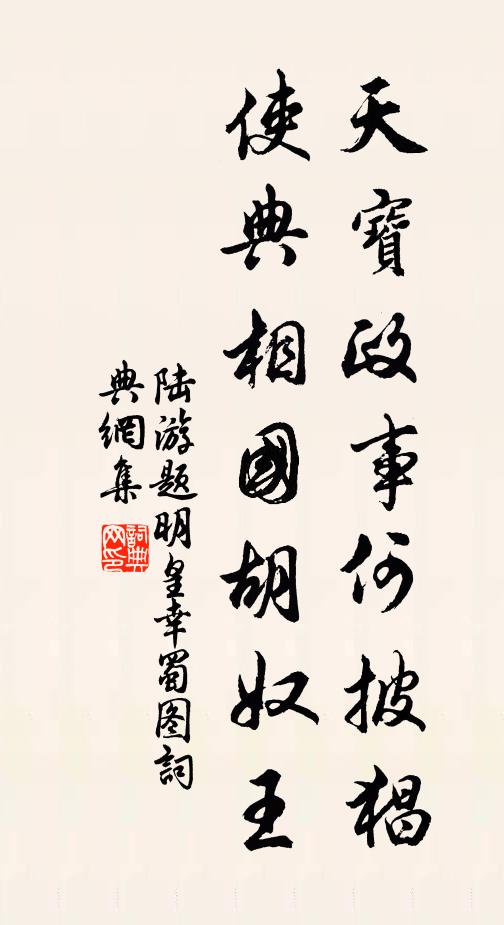 天寶政事何披猖
使典相國胡奴王
陆游题明皇幸蜀图詞
典網集
詞典网印